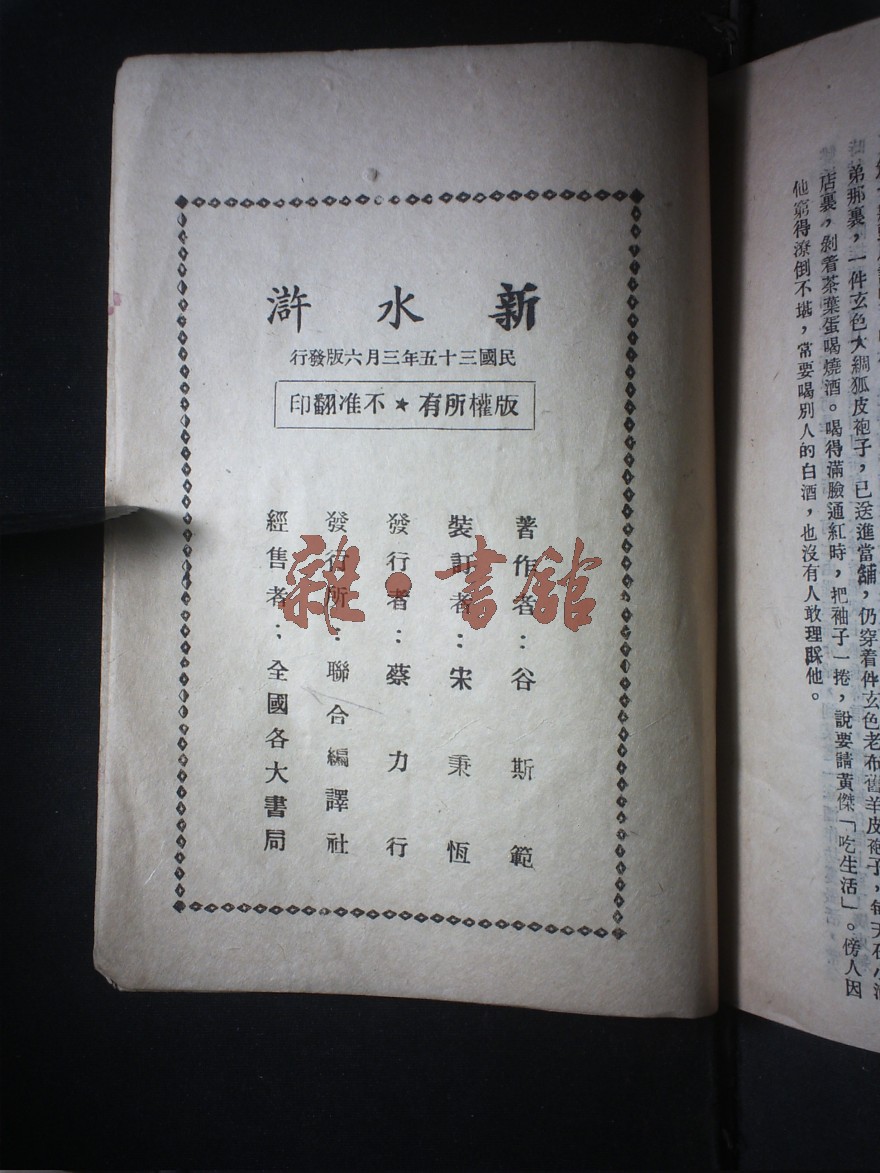 新水滸
民國三十五年三月六版發行
版權所有★不准翻印
著作者：谷斯範
裝訂者：宋秉恆
發行者：蔡力行
發行所：聯合編譯社
經售者：全國各大書局
雜·書館
弟那裏，一件玄色大綢狐皮袍子，已送進當舖，仍穿着件玄色老布舊羊皮袍子，每天在小酒
店裏，剝着茶葉蛋喝燒酒。喝得滿臉通紅時，把袖子一捲，說要請黃傑「吃生活」。傍人因
他窮得潦倒不堪，常要喝別人的白酒，也沒有人敢理睬他。